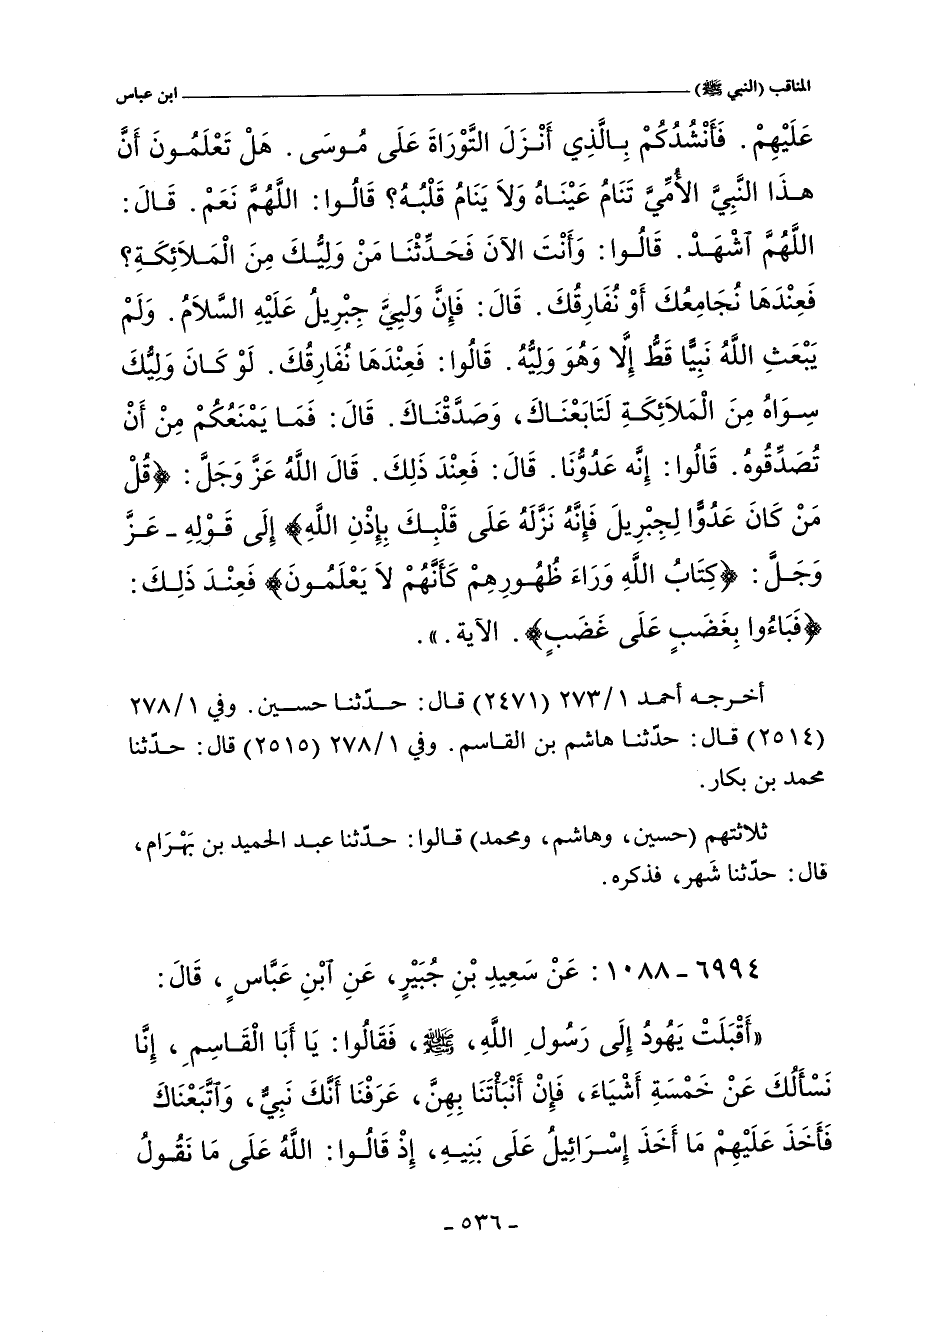 المناقب (النبي ﷺ) ابن عباس
عَلَيْهِمْ. فَأَنْشُدُكُمْ بِالَّذِي أَنْزَلَ التَّوْرَاةَ عَلَى مُوسَى. هَلْ تَعْلَمُونَ أَنَّ
هذَا النَّبِيَّ الأُمِّيَّ تَنَامُ عَيْنَاهُ وَلاَ يَنَامُ قَلْبُهُ؟ قَالُوا: اللَّهُمَّ نَعَمْ. قَالَ:
اللَّهُمَّ ٱشْهَدْ. قَالُوا: وَأَنْتَ الآنَ فَحَدِّثْنَا مَنْ وَلِيُّكَ مِنَ الْمَلاَئِكَةِ؟
فَعِنْدَهَا نُجَامِعُكَ أَوْ نُفَارِقُكَ. قَالَ: فَإِنَّ وَلِيِّيَ جِبْرِيلُ عَلَيْهِ السَّلاَمُ. وَلَمْ
يَبْعَثِ اللَّهُ نَبِيًّا قَطُّ إِلَّا وَهُوَ وَلِيُّهُ. قَالُوا: فَعِنْدَهَا نُفَارِقُكَ. لَوْ كَانَ وَلِيُّكَ
سِوَاهُ مِنَ الْمَلاَئِكَةِ لَتَابَعْنَاكَ، وَصَدَّقْنَاكَ. قَالَ: فَمَا يَمْنَعُكُمْ مِنْ أَنْ
تُصَدِّقُوهُ. قَالُوا: إِنَّه عَدُوُّنَا. قَالَ: فَعِنْدَ ذَلِكَ. قَالَ اللَّهُ عَزَّ وَجَلَّ: ﴿قُلْ
مَنْ كَانَ عَدُوًّا لِجِبْرِيلَ فَإِنَّهُ نَزَّلَهُ عَلَى قَلْبِكَ بِإِذْنِ اللَّهِ﴾ إِلَى قَوْلِهِ - عَزَّ
وَجَلَّ: ﴿كِتَابُ اللَّهِ وَرَاءَ ظُهُورِهِمْ كَأَنَّهُمْ لاَ يَعْلَمُونَ﴾ فَعِنْدَ ذَلِكَ:
﴿فَبَاءُوا بِغَضَبٍ عَلَى غَضَبٍ﴾. الآية.».
أخرجه أحمد ١/ ٢٧٣ (٢٤٧١) قال: حدّثنا حسين. وفي ١/ ٢٧٨
(٢٥١٤) قال: حدّثنا هاشم بن القاسم. وفي ١/ ٢٧٨ (٢٥١٥) قال: حدّثنا
محمد بن بكار.
ثلاثتهم (حسين، وهاشم، ومحمد) قالوا: حدّثنا عبد الحميد بن بَهْرَام،
قال: حدّثنا شَهر، فذكره.
٦٩٩٤ - ١٠٨٨: عَنْ سَعِيدِ بْنِ جُبَيْرٍ، عَنِ ٱبْنِ عَبَّاسٍ، قَالَ:
«أَقْبَلَتْ يَهُودُ إِلَى رَسُولِ اللَّهِ، ﷺ، فَقَالُوا: يَا أَبَا الْقَاسِمِ، إِنَّا
نَسْأَلُكَ عَنْ خَمْسَةِ أَشْيَاءَ، فَإِنْ أَنْبَأْتَنَا بِهِنَّ، عَرَفْنَا أَنَّكَ نَبِيٌّ، وَٱتَّبَعْنَاكَ
فَأَخَذَ عَلَيْهِمْ مَا أَخَذَ إِسْرَائِيلُ عَلَى بَنِيهِ، إِذْ قَالُوا: اللَّهُ عَلَى مَا نَقُولُ
- ٥٣٦ -